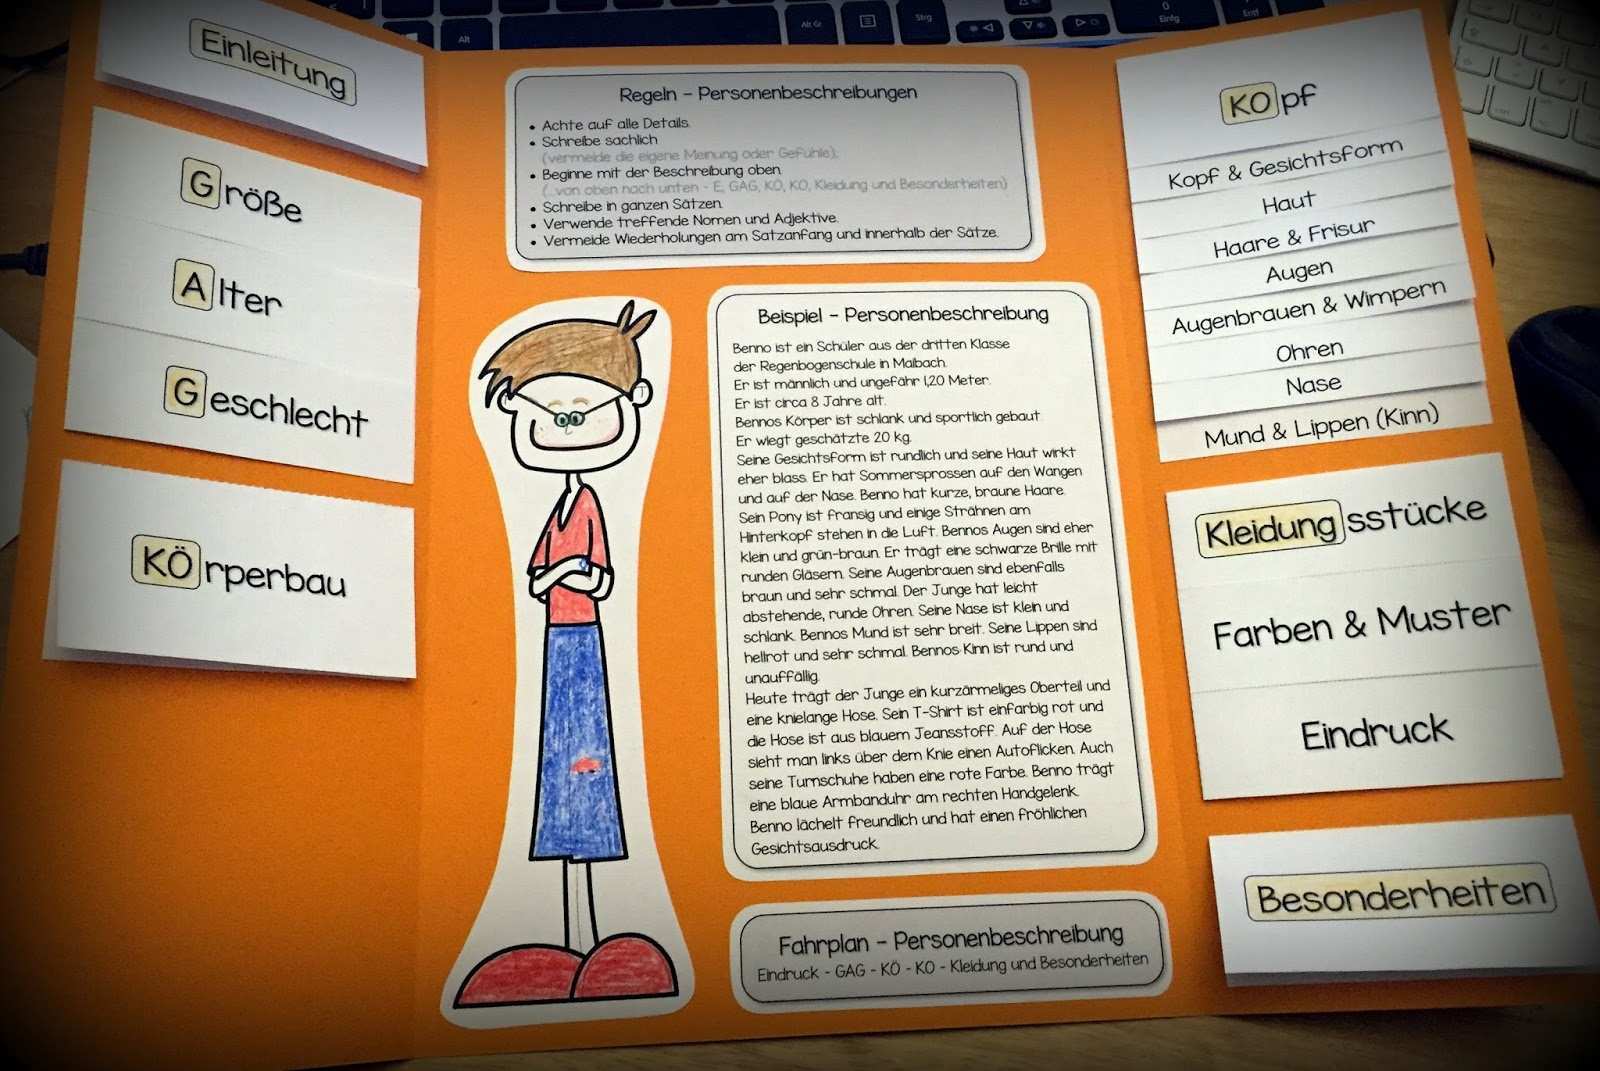 Einleitung
Größe
Alter
Geschlecht
KÖrperbau
Regeln - Personenbeschreibungen
• Achte auf alle Details.
• Schreibe sachlich
(vermeide die eigene Meinung oder Gefühle).
• Beginne mit der Beschreibung oben
(...von oben nach unten - E, GAG, KÖ, KO, Kleidung und Besonderheiten)
• Schreibe in ganzen Sätzen.
• Verwende treffende Nomen und Adjektive.
• Vermeide Wiederholungen am Satzanfang und innerhalb der Sätze.
Beispiel - Personenbeschreibung
Benno ist ein Schüler aus der dritten Klasse
der Regenbogenschule in Maibach.
Er ist männlich und ungefähr 1,20 Meter.
Er ist circa 8 Jahre alt.
Bennos Körper ist schlank und sportlich gebaut.
Er wiegt geschätzte 20 kg.
Seine Gesichtsform ist rundlich und seine Haut wirkt
eher blass. Er hat Sommersprossen auf den Wangen
und auf der Nase. Benno hat kurze, braune Haare.
Sein Pony ist fransig und einige Strähnen am
Hinterkopf stehen in die Luft. Bennos Augen sind eher
klein und grün-braun. Er trägt eine schwarze Brille mit
runden Gläsern. Seine Augenbrauen sind ebenfalls
braun und sehr schmal. Der Junge hat leicht
abstehende, runde Ohren. Seine Nase ist klein und
schlank. Bennos Mund ist sehr breit. Seine Lippen sind
hellrot und sehr schmal. Bennos Kinn ist rund und
unauffällig.
Heute trägt der Junge ein kurzärmeliges Oberteil und
eine knielange Hose. Sein T-Shirt ist einfarbig rot und
die Hose ist aus blauem Jeansstoff. Auf der Hose
sieht man links über dem Knie einen Autoflicken. Auch
seine Turnschuhe haben eine rote Farbe. Benno trägt
eine blaue Armbanduhr am rechten Handgelenk.
Benno lächelt freundlich und hat einen fröhlichen
Gesichtsausdruck.
Fahrplan - Personenbeschreibung
Eindruck - GAG - KÖ - KO - Kleidung und Besonderheiten
KOpf
Kopf & Gesichtsform
Haut
Haare & Frisur
Augen
Augenbrauen & Wimpern
Ohren
Nase
Mund & Lippen (Kinn)
Kleidungsstücke
Farben & Muster
Eindruck
Besonderheiten
Alt
Alt Gr
Strg
0
Einfg
Entf